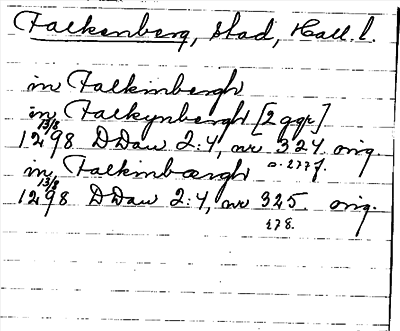 Falkenberg, stad, Hall. l.
in Falkinbergh
in Falkynbergh [2 ggr]
1298 13/8 DDan 2:4, nr 324 orig.
s. 277 f.
in Falkinbærgh
1298 13/8 DDan 2:4, nr 325 orig.
278.